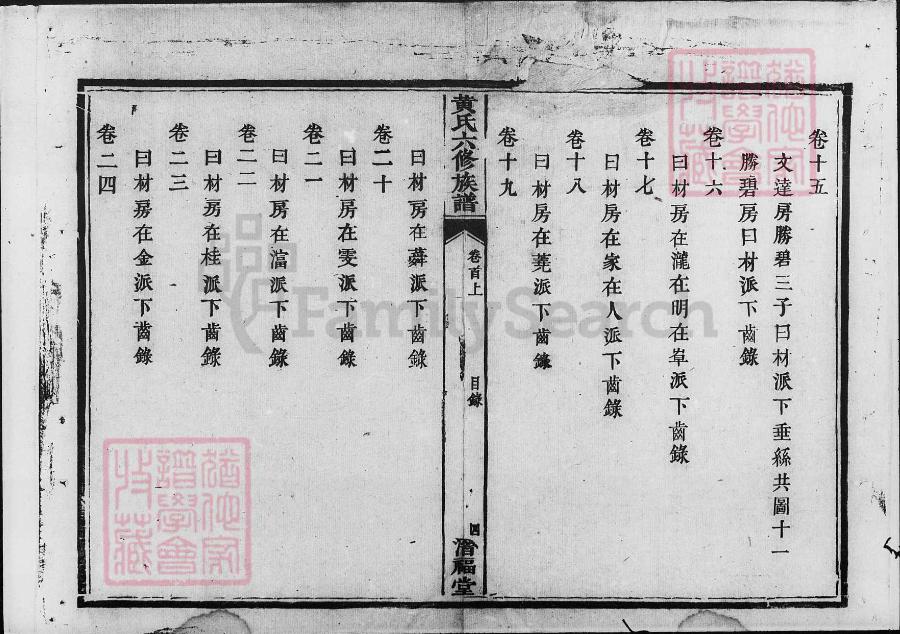 卷十五
文達房勝碧三子曰材派下垂絲共圖十一
勝碧房曰材派下齒錄
卷十六
曰材房在瀧在明在阜派下齒錄
卷十七
曰材房在家在人派下齒錄
卷十八
曰材房在蓂派下齒錄
卷十九
黃氏六修族譜
卷首上
目錄
四
濳福堂
曰材房在蕣派下齒錄
卷二十
曰材房在雯派下齒錄
卷二一
曰材房在滀派下齒錄
卷二二
曰材房在桂派下齒錄
卷二三
曰材房在金派下齒錄
卷二四
FamilySearch
譜學會
收藏
譜學會
收藏